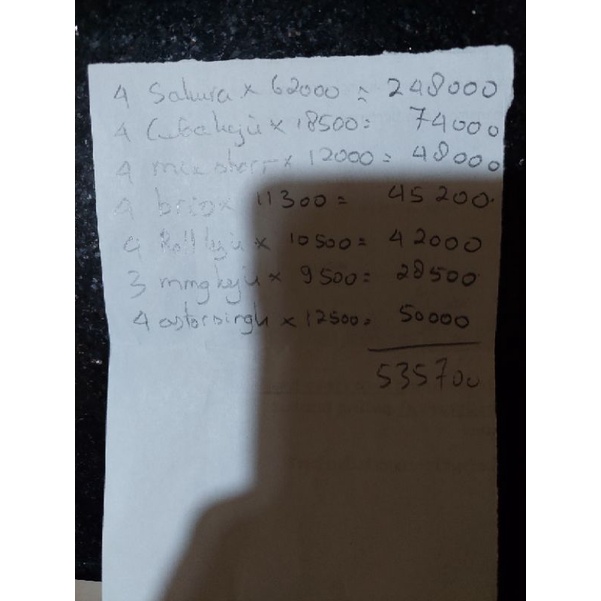 4 Sakura x 62000 = 248000
4 Cubakeju x 18500= 74000
4 mix x 12000= 48000
4 x 11300= 45200
4 Roll keju x 10500= 42000
3 keju x 9500= 28500
4 x 12500= 50000
535700